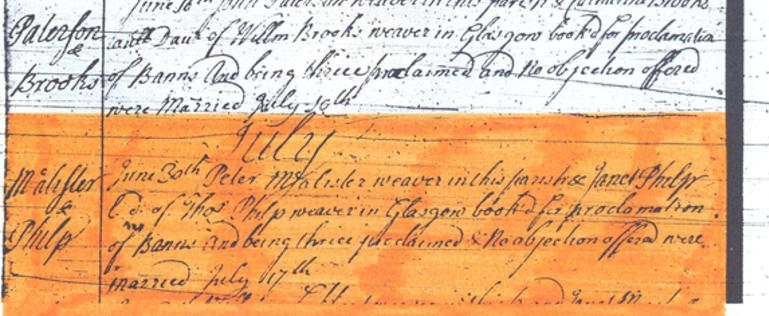 June 16th John Paterson weaver in this parish & Catharine Brooks
Paterson
&
Brooks
lawll Daur. of Willm Brooks weaver in Glasgow book'd for proclamation
of Banns And being thrice proclaimed and No objection offered
were Married July 10th
July
McAlister
&
Philp
June 30th Peter McAlister weaver in this parish & Janet Philp
L. d. of Thos Philp weaver in Glasgow book'd for proclamation
of Banns And being thrice proclaimed & No objection offered were
Married July 17th